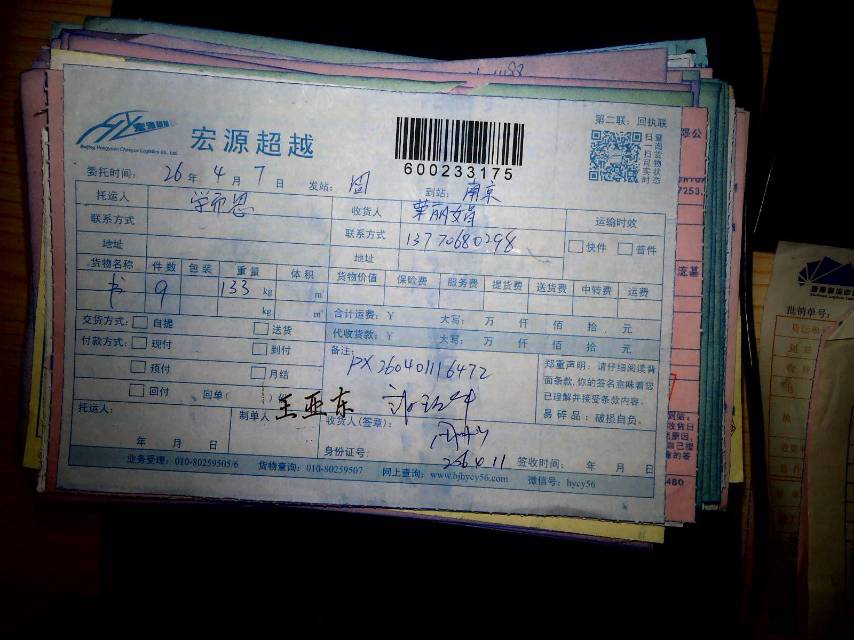 第二联：回执联
宏源超越
600233175
扫一扫 查询货物实时状态
委托时间： 26 年 4 月 7 日 发站： 到站： 南京
托运人 学而思 收货人 运输时效
联系方式 联系方式 13770680298 快件 普件
地址 地址
货物名称 件数 包装 重量 体积 货物价值 保险费 服务费 提货费 送货费 中转费 运费
书 9 133 kg m³
kg m³
合计运费：￥ 大写： 万 仟 佰 拾 元
交货方式： 自提 送货 代收货款：￥ 大写： 万 仟 佰 拾 元
付款方式： 现付 到付 备注： PX260401116472
预付 月结
回付 回单（ ）
郑重声明：请仔细阅读背
面条款，你的签名意味着您
已理解并接受条款内容。
易碎品：破损自负。
托运人： 制单人 王亚东 收货人（签章）：
年 月 日 身份证号： 26 4 11 签收时间： 年 月 日
业务受理：010-80259505/6 货物查询：010-80259507 网上查询：www.bjhycy56.com 微信号：hycy56
批销单号：